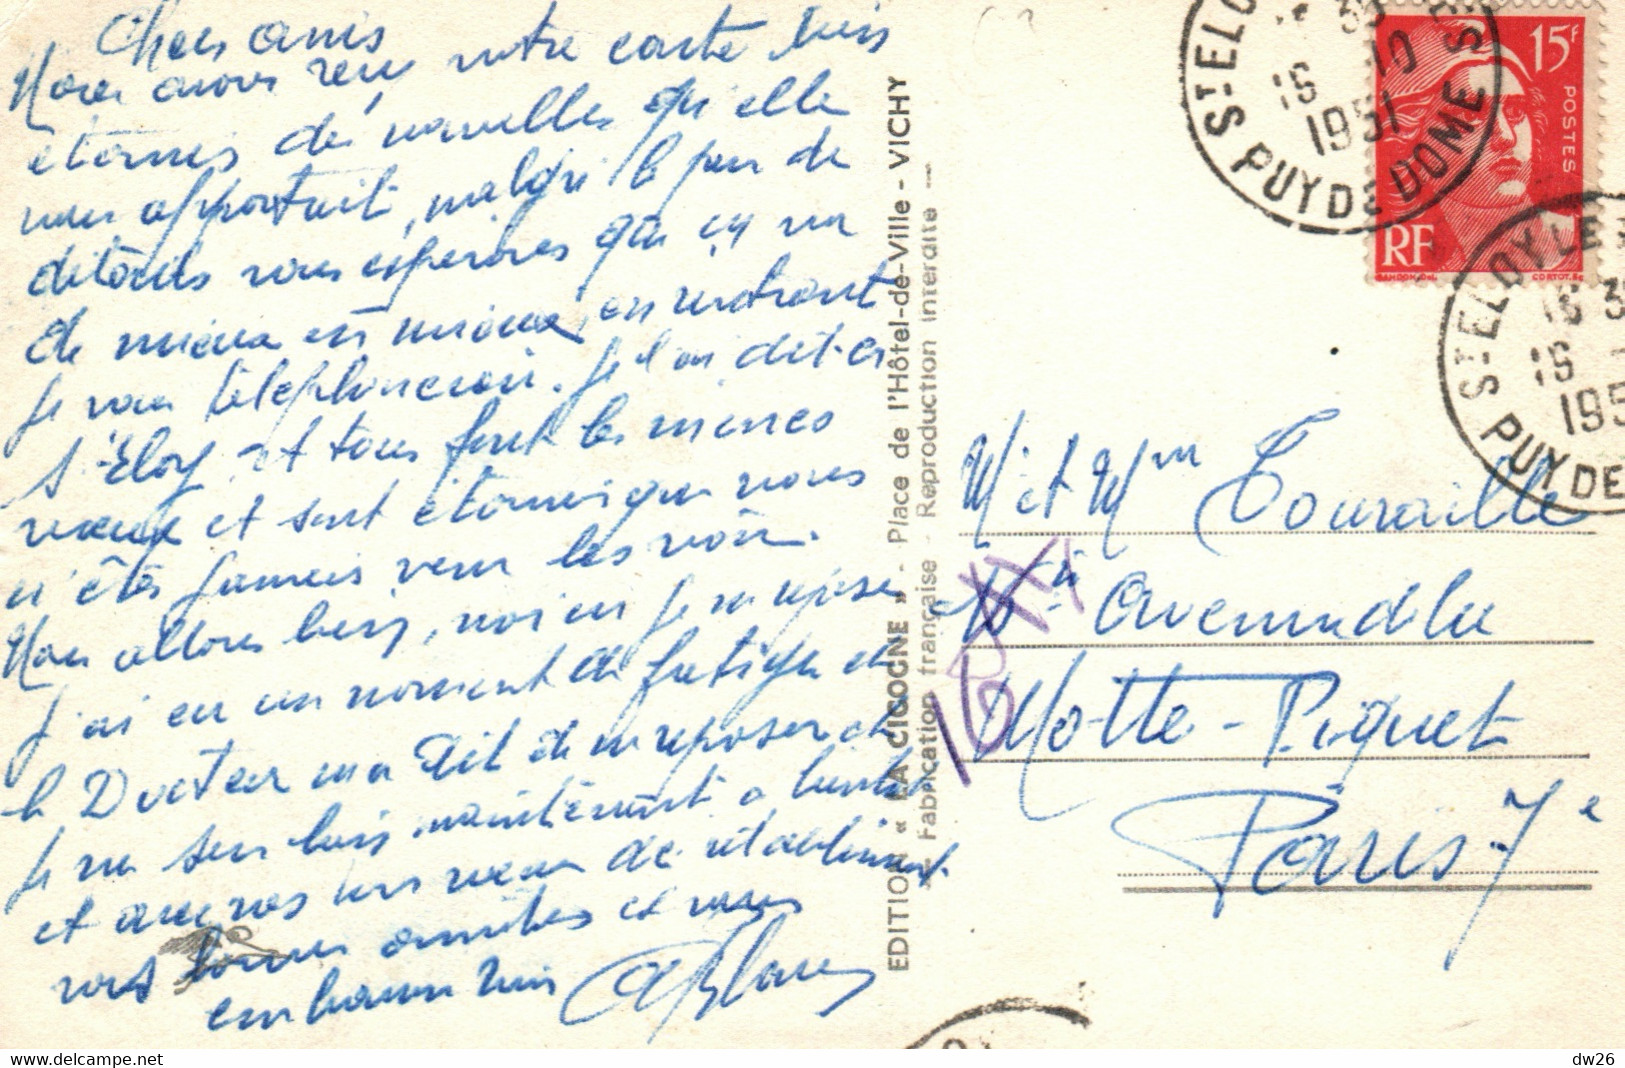 Chers amis
Nous avons reçu votre carte bien
étonnés de nouvelles qu'elle
nous apportait, malgré le peu de
détails nous espérons que ça va
de mieux en mieux, en rentrant
je vous téléphonerai. Je l'ai dit à
St Eloy et tous font les mêmes
vœux et sont étonnés que nous
n'êtes jamais venu les voir.
Nous allons bien, moi en je me repose
j'ai eu un moment de fatigue et
le Docteur m'a dit de me reposer et
je me sens bien maintenant a bientôt
et avec nos bons vœux de rétablissement
nos bonnes amitiés et vous
embrassons bien
EDITION « LA CIGOGNE » - Place de l'Hôtel-de-Ville - VICHY
— Fabrication française - Reproduction interdite —
15F
POSTES
RF
GANDON. Del.
CORTOT. Sc
ST ELOY
16 30
16 - 10
1951
PUY DE DOME
ST ELOY LES
16 3
16 -
195
PUY DE
M et Mme Touraille
Avenue de la
Motte-Piquet
Paris 7e
16
dw26